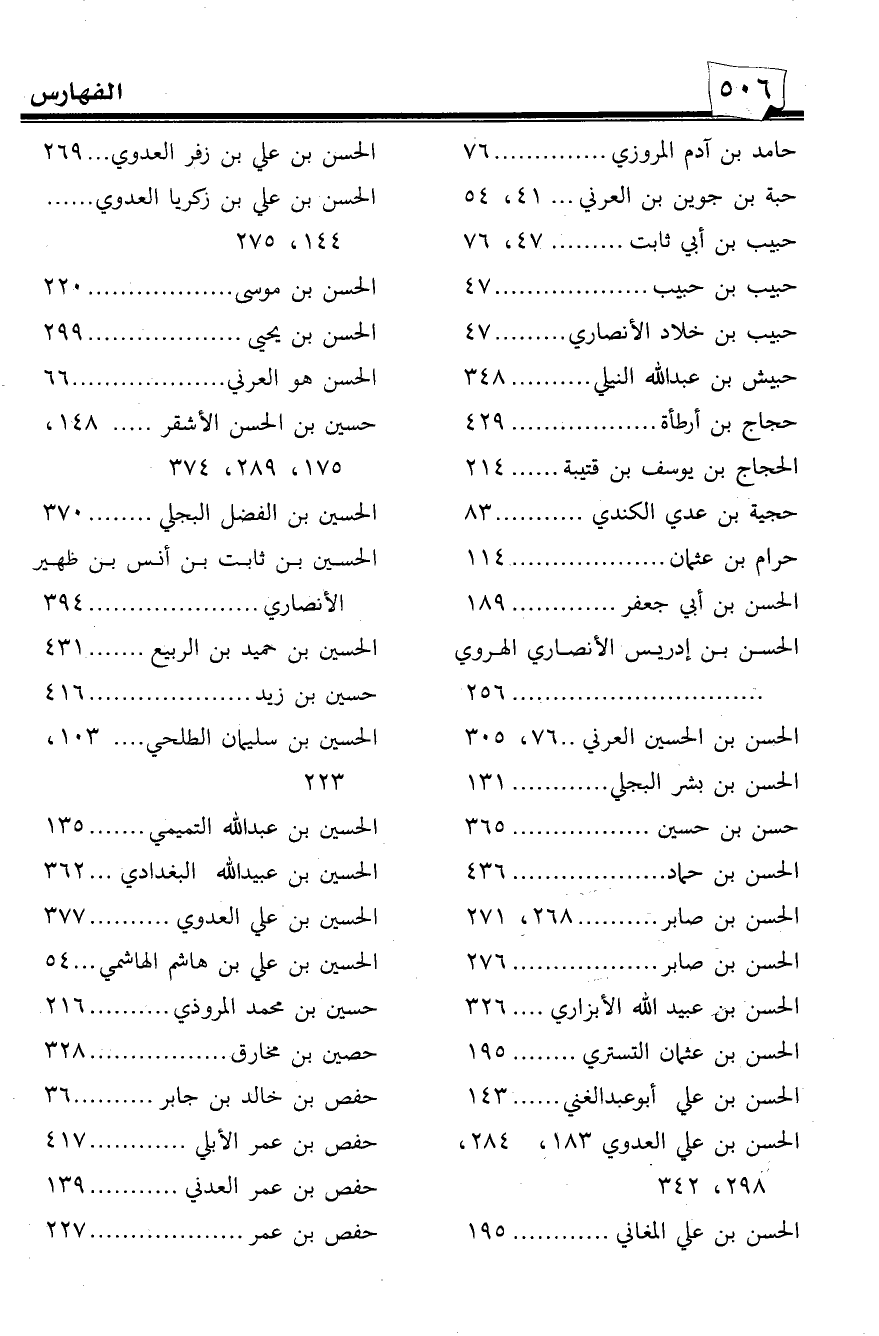 ٥٠٦
الفهارس
حامد بن آدم المروزي..............٧٦
حبة بن جوين بن العرني... ٤١، ٥٤
حبيب بن أبي ثابت ......... ٤٧، ٧٦
حبيب بن حبيب...................٤٧
حبيب بن خلاد الأنصاري.........٤٧
حبيش بن عبدالله النيلي..........٣٤٨
حجاج بن أرطأة..................٤٢٩
الحجاج بن يوسف بن قتيبة ......٢١٤
حجية بن عدي الكندي ...........٨٣
حرام بن عثمان...................١١٤
الحسن بن أبي جعفر .............١٨٩
الحسن بن إدريس الأنصاري الهروي
...............................٢٥٦
الحسن بن الحسين العرني ..٧٦، ٣٠٥
الحسن بن بشر البجلي............١٣١
حسن بن حسين .................٣٦٥
الحسن بن حماد...................٤٣٦
الحسن بن صابر..........٢٦٨، ٢٧١
الحسن بن صابر..................٢٧٦
الحسن بن عبيد الله الأبزاري ....٣٢٦
الحسن بن عثمان التستري ........١٩٥
الحسن بن علي أبوعبدالغني......١٤٣
الحسن بن علي العدوي ١٨٣، ٢٨٤،
٢٩٨، ٣٤٢
الحسن بن علي المغاني ............١٩٥
الحسن بن علي بن زفر العدوي...٢٦٩
الحسن بن علي بن زكريا العدوي......
١٤٤، ٢٧٥
الحسن بن موسى..................٢٢٠
الحسن بن يحيى ...................٢٩٩
الحسن هو العرني...................٦٦
حسين بن الحسن الأشقر ..... ١٤٨،
١٧٥، ٢٨٩، ٣٧٤
الحسين بن الفضل البجلي ........٣٧٠
الحسين بن ثابت بن أنس بن ظهير
الأنصاري .....................٣٩٤
الحسين بن حميد بن الربيع .......٤٣١
حسين بن زيد....................٤١٦
الحسين بن سليمان الطلحي.... ١٠٣،
٢٢٣
الحسين بن عبدالله التميمي.......١٣٥
الحسين بن عبيدالله البغدادي ...٣٦٢
الحسين بن علي العدوي ..........٣٧٧
الحسين بن علي بن هاشم الهاشمي...٥٤
حسين بن محمد المروذي..........٢١٦
حصين بن مخارق.................٣٢٨
حفص بن خالد بن جابر ..........٣٦
حفص بن عمر الأبلي ............٤١٧
حفص بن عمر العدني ...........١٣٩
حفص بن عمر ...................٢٢٧